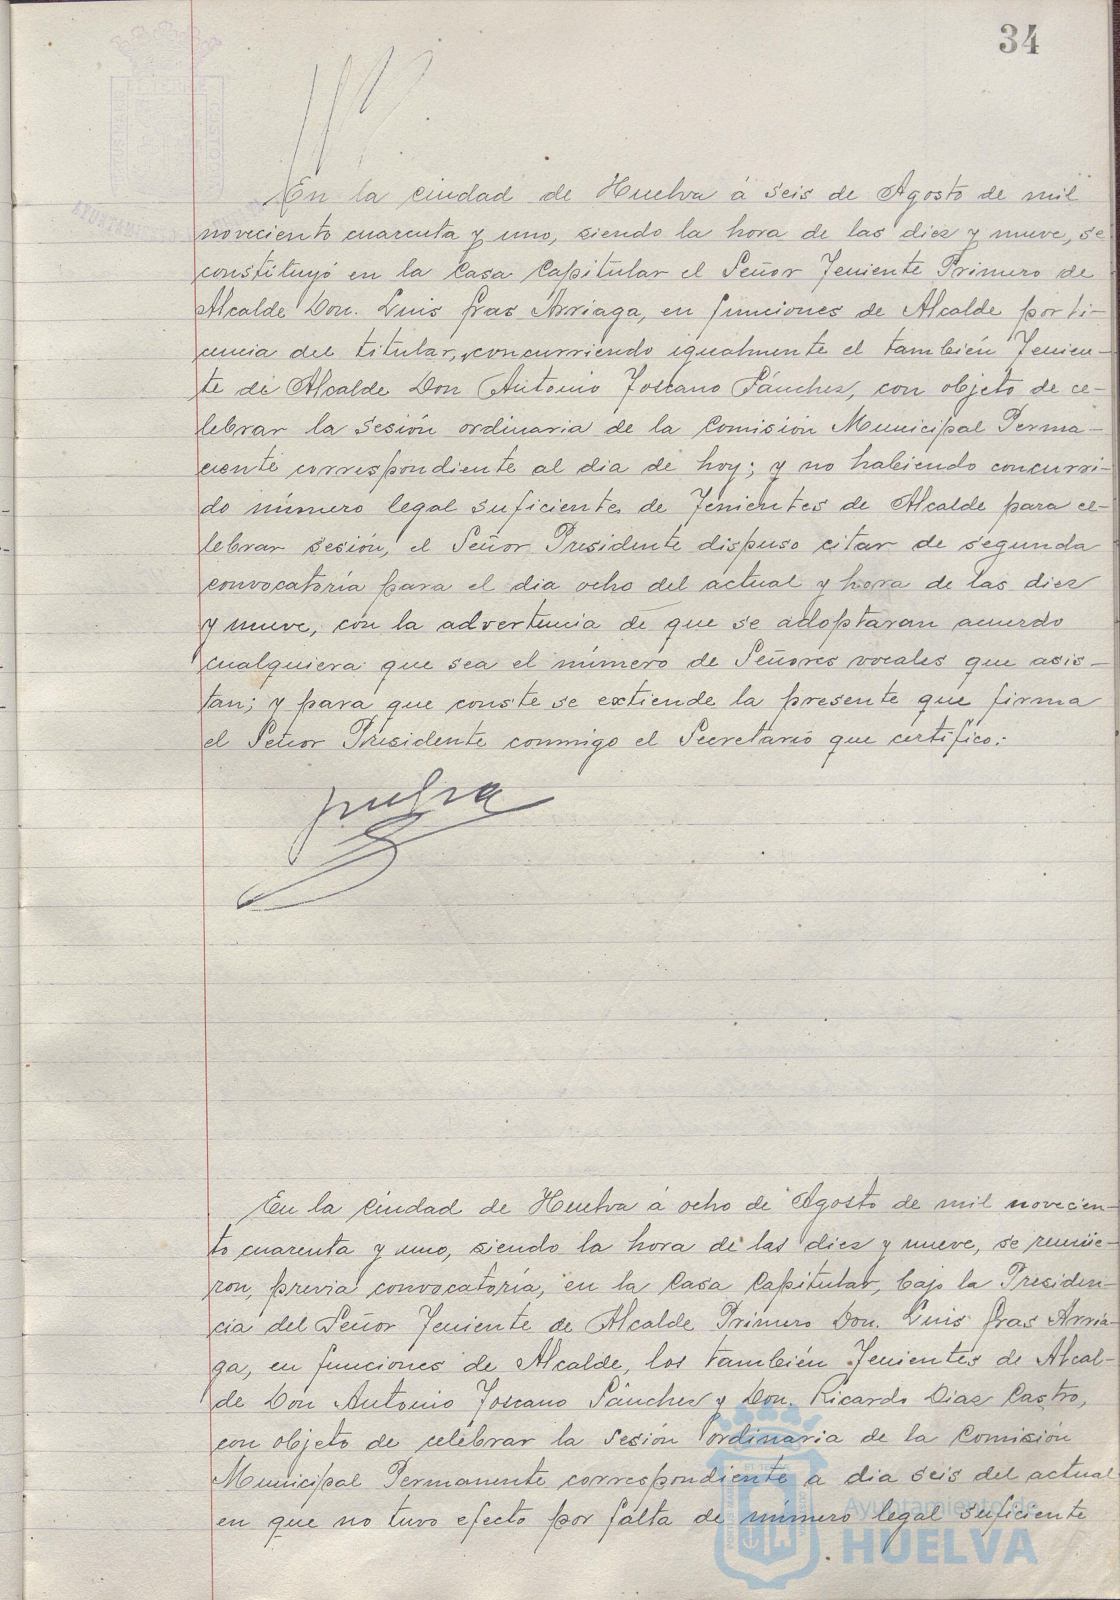 34
En la Ciudad de Huelva á seis de Agosto de mil
noveciento cuarenta y uno, siendo la hora de las diez y nueve, se
constituyó en la Casa Capitular el Señor Teniente Primero de
Alcalde Don. Luis Gras Arriaga, en funciones de Alcalde por li-
cencia del titular, concurriendo igualmente el también Tenien-
te de Alcalde Don Antonio Toscano Sánchez, con objeto de ce-
lebrar la sesión ordinaria de la Comisión Municipal Perma-
nente correspondiente al dia de hoy; y no habiendo concurri-
do número legal suficiente de Tenientes de Alcalde para ce-
lebrar sesión, el Señor Presidente dispuso citar de segunda
convocatoría para el dia ocho del actual y hora de las diez
y nueve, con la advertencia de que se adoptaran acuerdo
cualquiera que sea el número de Señores vocales que asis-
tan; y para que conste se extiende la presente que firma
el Señor Presidente conmigo el Secretario que certifico:
En la Ciudad de Huelva á ocho de Agosto de mil novecien-
to cuarenta y uno, siendo la hora de las diez y nueve, se reunie-
ron, previa convocatoría, en la Casa Capitular, bajo la Presiden-
cia del Señor Teniente de Alcalde Primero Don. Luis Gras Arria-
ga, en funciones de Alcalde, los también Tenientes de Alcal-
de Don Antonio Toscano Sánchez y Don. Ricardo Diaz Castro,
con objeto de celebrar la sesión ordinaria de la Comisión
Municipal Permanente correspondiente a dia seis del actual
en que no tuvo efecto por falta de número legal suficiente
Ayuntamiento de
HUELVA